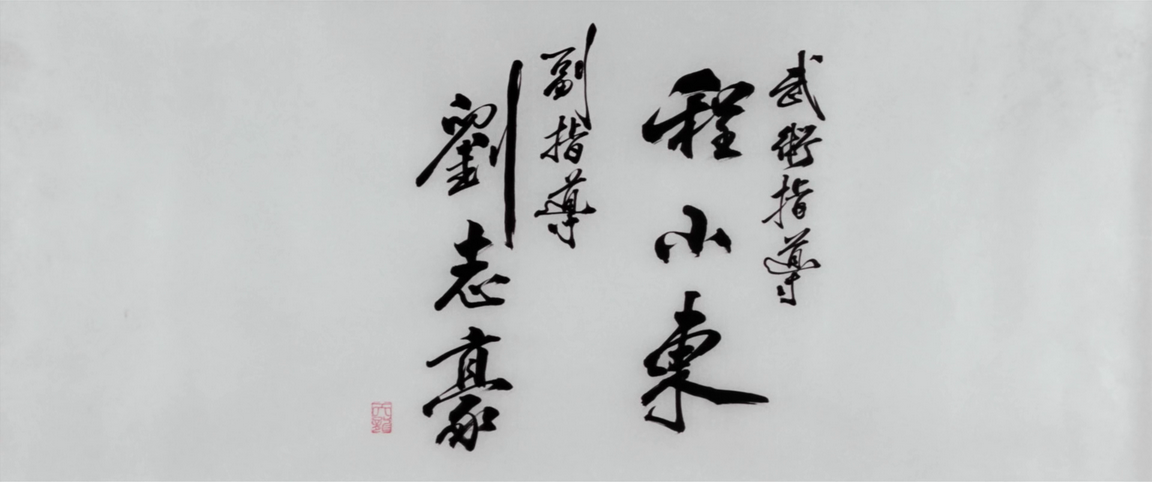 武術指導
程小東
副指導
劉志豪